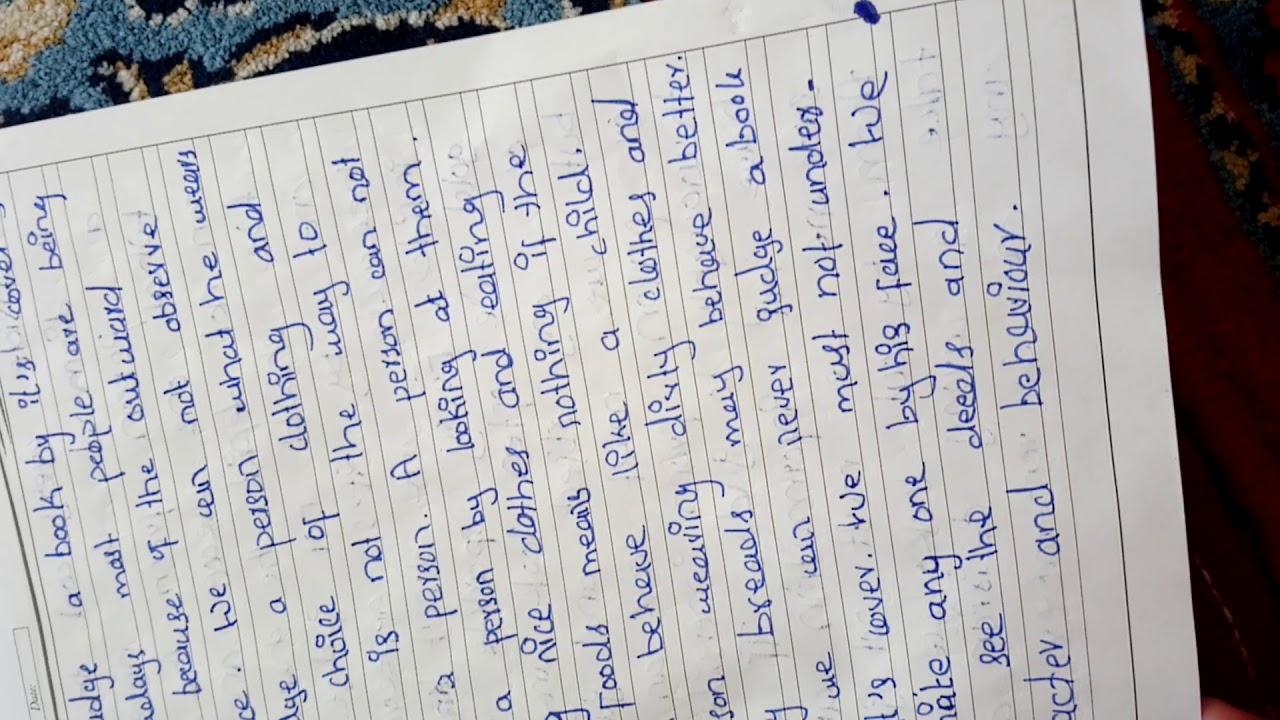 Date:
udge a book by it's cover
adays most people are being
because of the outward
ce. We can not observe
dge a person what he wears
choice of clothing and
is not the way to
a person. A person can not
a person by looking at them.
g nice clothes and eating
Foods means nothing if the
behave like a child.
son wearing dirty clothes and
y breads may behave better.
we can never gudge a book
t's cover. We must not under-
make any one by his face. We
see the deeds and
acter and behaviour.